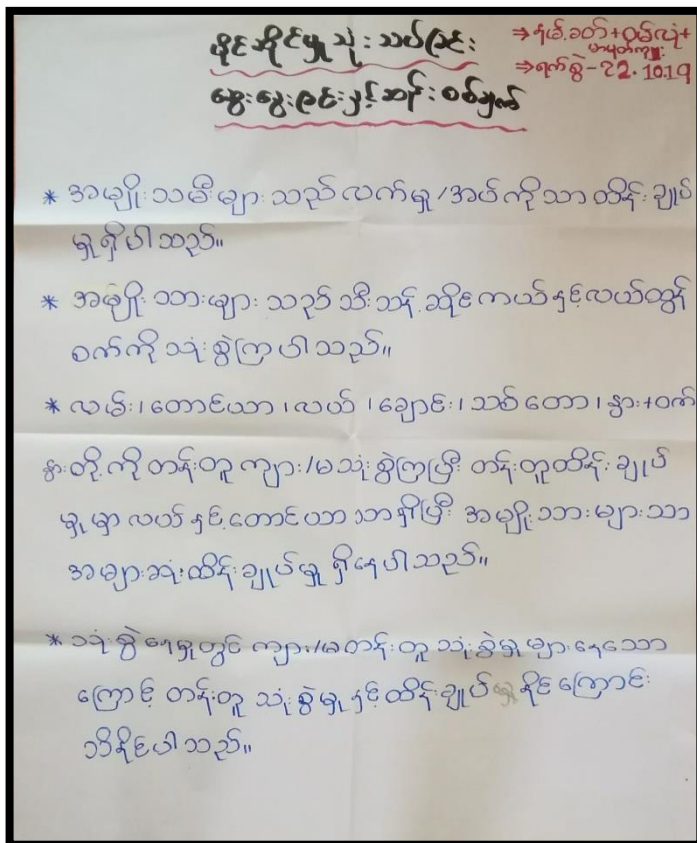 ပိုင်ဆိုင်မှုသုံးသပ်ခြင်း
ဆွေးနွေးခြင်းနှင့်ဆန်းစစ်ချက်
⇒ရက်စွဲ-22.10.19
* အမျိုးသမီးများသည်လက်မှု/အပ်ကိုသာထိန်းချုပ်
မှုရှိပါသည်။
* အမျိုးသားများသည် သီးသန့်ဆိုင်ကယ်နှင့်လယ်ထွန်
စက်ကိုသုံးစွဲကြပါသည်။
* လမ်း၊တောင်ယာ၊လယ်၊ချောင်း၊သစ်တော၊နွား+ဝက်
နွားတို့ကိုတန်းတူကျား/မသုံးစွဲကြပြီး တန်းတူထိန်းချုပ်
မှုမှာလယ်နှင့်တောင်ယာသာရှိပြီး အမျိုးသားများသာ
အများဆုံးထိန်းချုပ်မှု ရှိနေပါသည်။
* သုံးစွဲနေမှုတွင် ကျား/မတန်းတူ သုံးစွဲမှုများနေသော
ကြောင့် တန်းတူ သုံးစွဲမှုနှင့်ထိန်းချုပ်မှုနိုင်ကြောင်း
သိနိုင်ပါသည်။